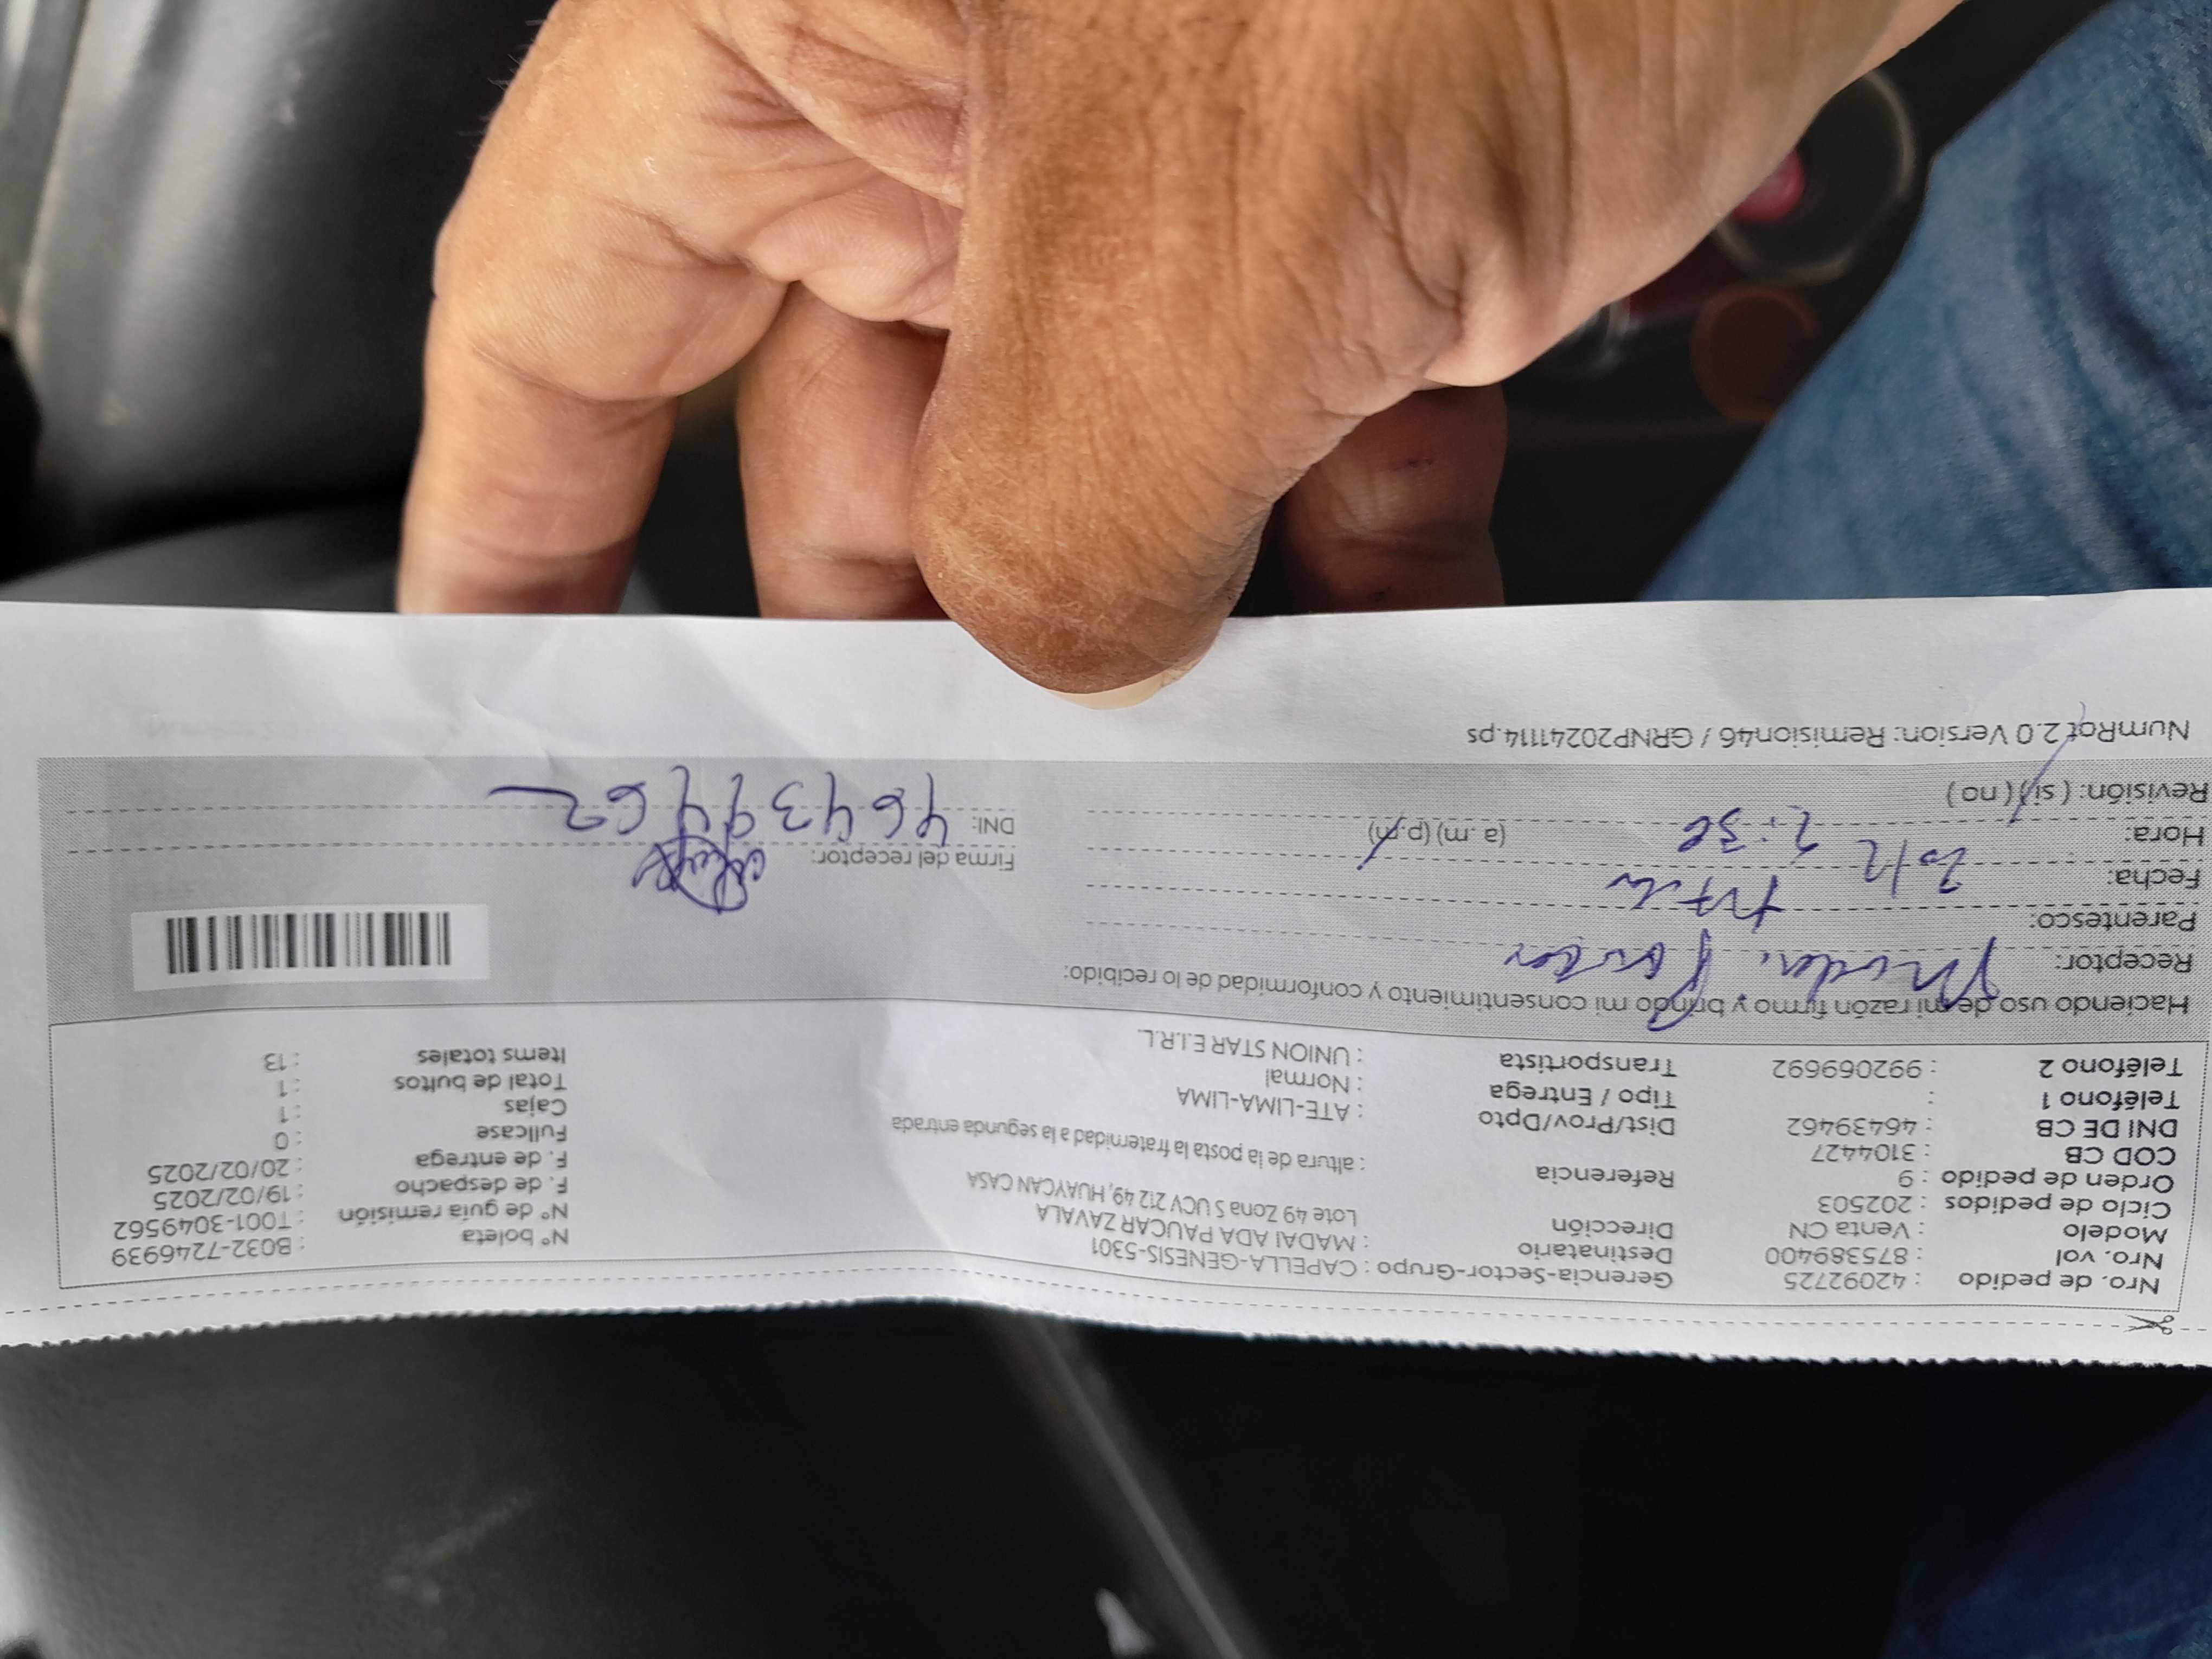 Nro. de pedido : 42092725 Gerencia-Sector-Grupo : CAPELLA-GENESIS-5301 N° boleta : B032-7246939
Nro. vol : 875389400 Destinatario : MADAI ADA PAUCAR ZAVALA N° de guía remisión : T001-3049562
Modelo : Venta CN Dirección Lote 49 Zona S UCV 212 49, HUAYCAN CASA F. de despacho : 19/02/2025
Ciclo de pedidos : 202503 F. de entrega : 20/02/2025
Orden de pedido : 9 Referencia : altura de la posta la fraternidad a la segunda entrada Fullcase : 0
COD CB : 3104427 Cajas : 1
DNI DE CB : 46439462 Dist/Prov/Dpto : ATE-LIMA-LIMA Total de bultos : 1
Teléfono 1 : Tipo / Entrega : Normal Items totales : 13
Teléfono 2 : 992069692 Transportista : UNION STAR E.I.R.L.
Haciendo uso de mi razón firmo y brindo mi consentimiento y conformidad de lo recibido:
Receptor: Madai Paucar
Parentesco: Titular
Fecha: 20/2 Firma del receptor:
Hora: (a.m) (p.m) DNI: 46439462
Revisión: (si) (no)
NumRot 2.0 Version: Remision46 / GRNP20241114.ps